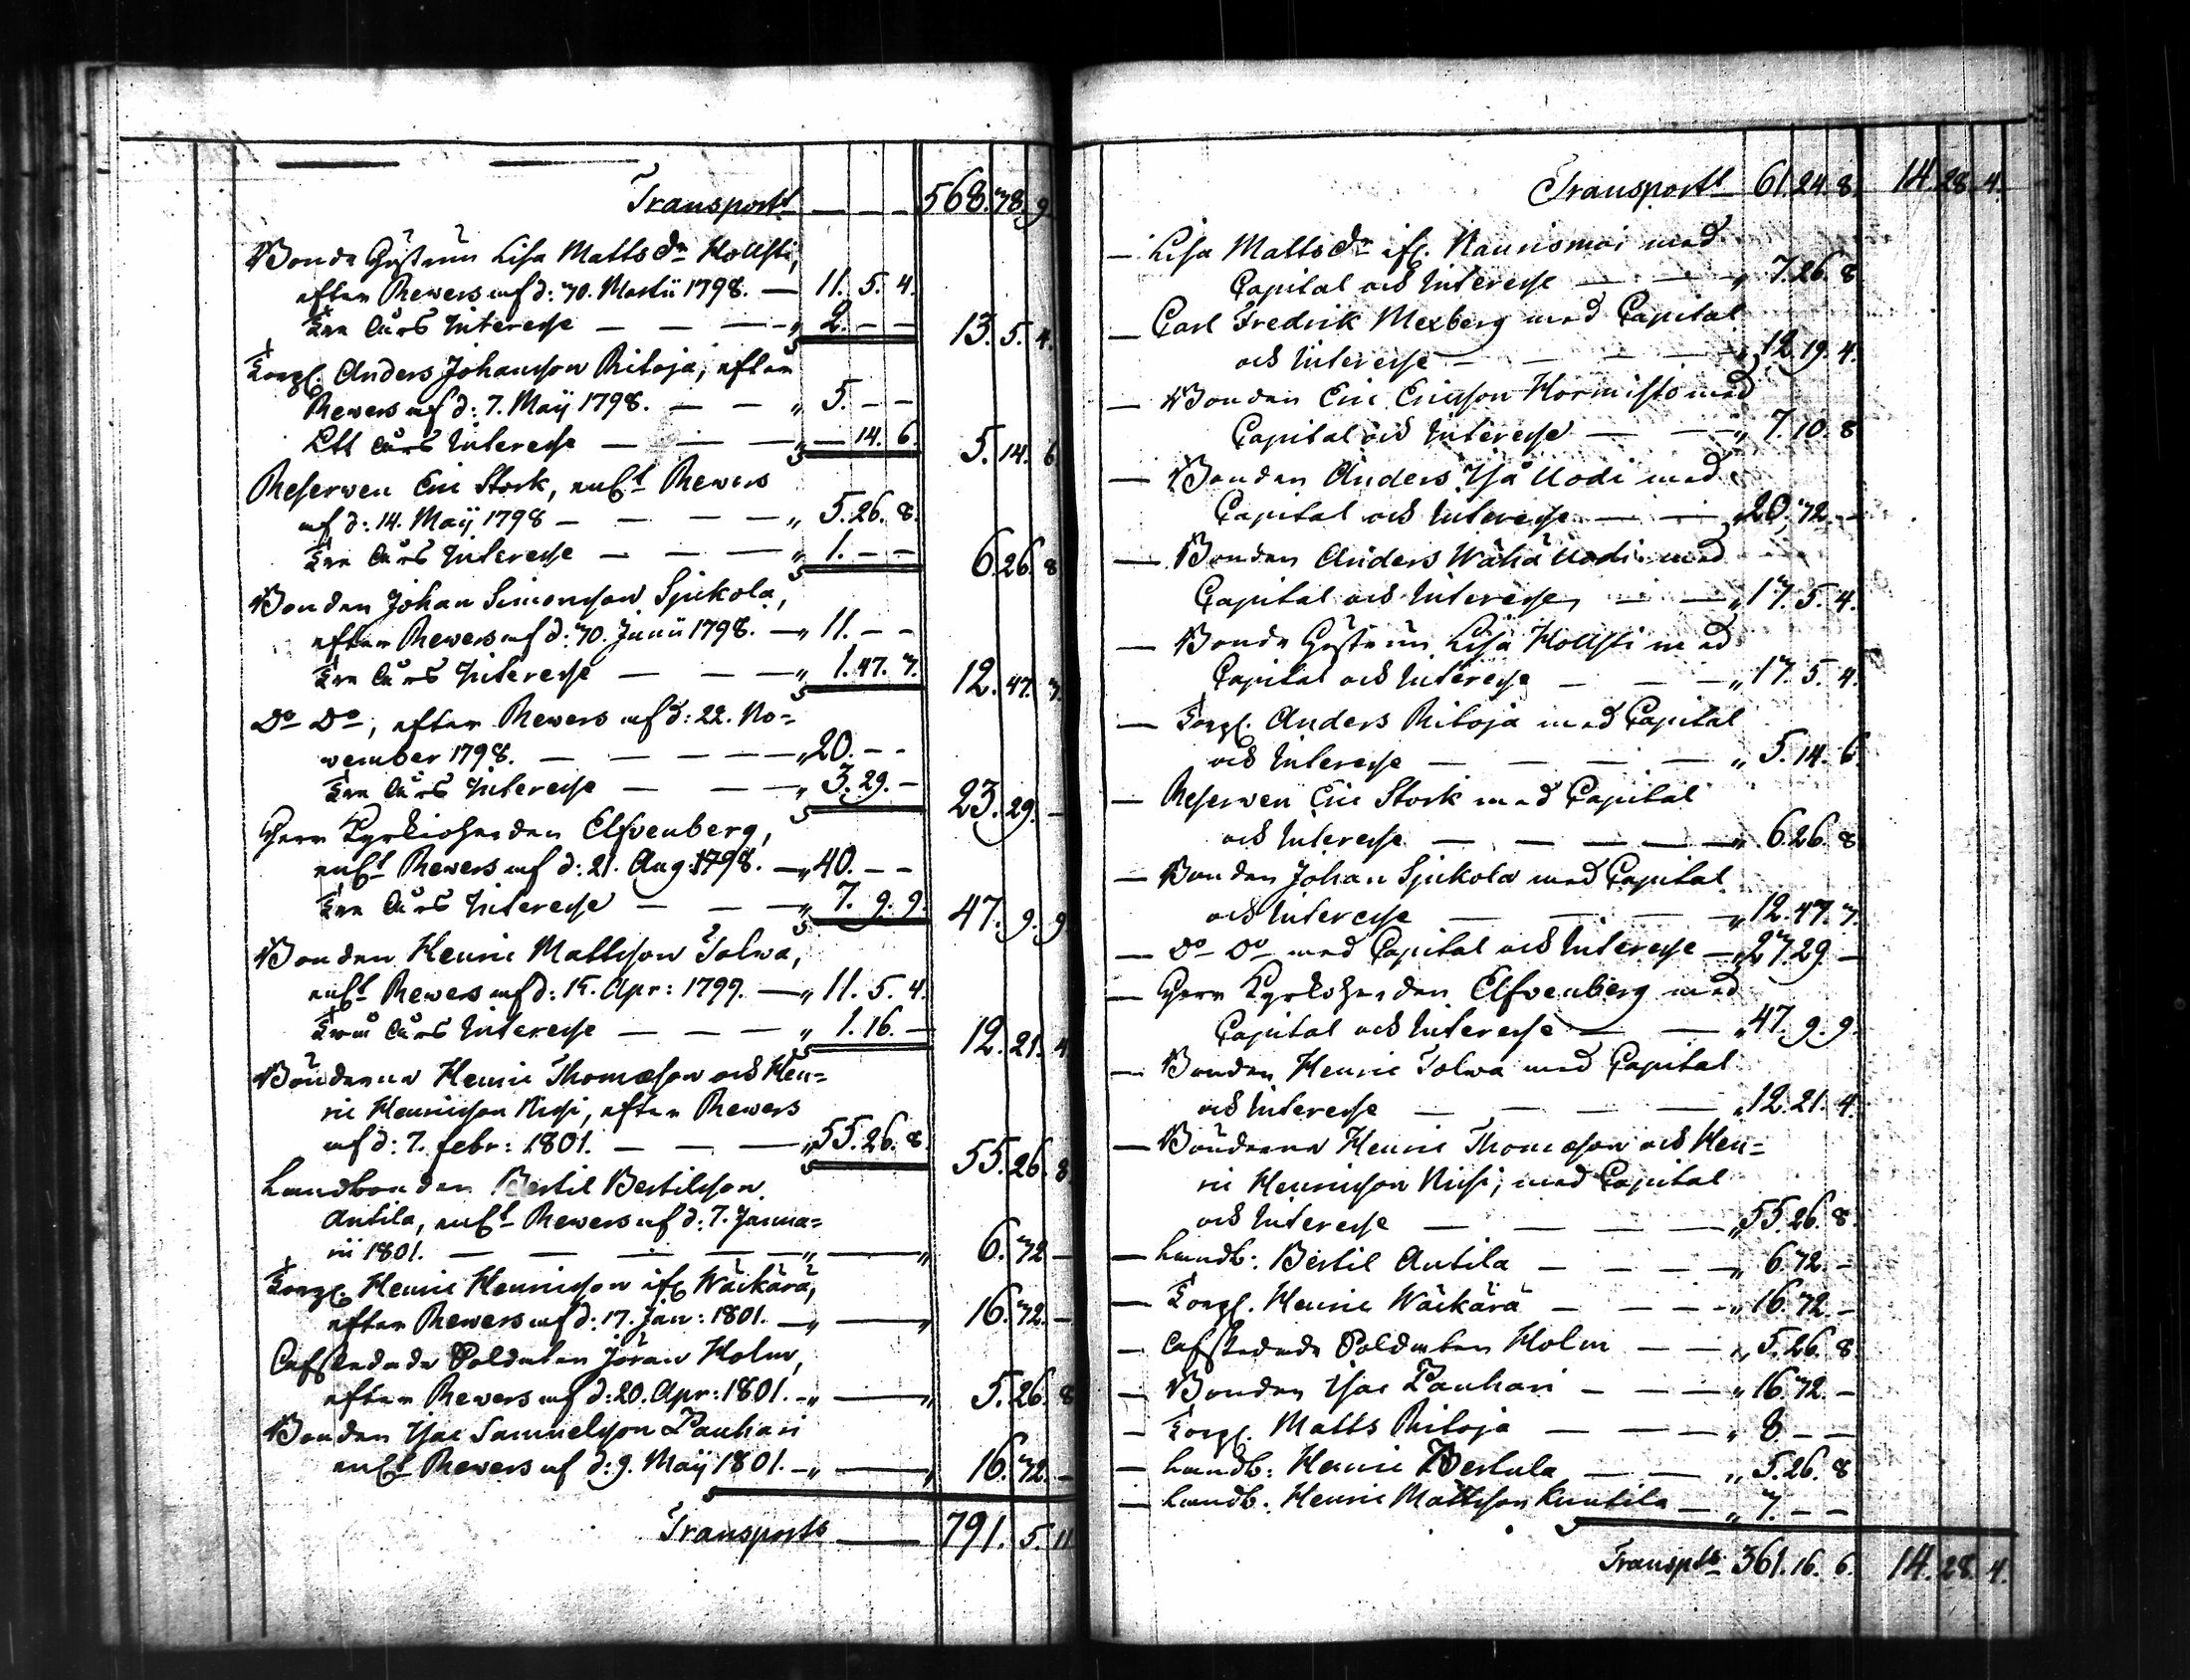 Transport — — — 568. 78. 9.
Bonde Gustrun Lisa Matts dr Hollsti,
efter Revers af d: 30. Martii 1798. — 11. 5. 4.
Tre Åurs Interesse — — — „ 2. — — 13. 5. 4.
Torp. Anders Johansson Ritoja, efter
Revers af d: 7. Maÿ 1798. — — „ 5. — —
Ett åurs Interesse — — — „ — 14. 6. 5. 14. 6.
Reserven Eric Stork, enl:t Revers
af d: 14. Maÿ 1798 — — — — „ 5. 26. 8.
Tre åurs Interesse — — — „ 1. — — 6. 26. 8.
Bonden Johan Simonsson Spikola,
efter Revers af d: 30. Junii 1798. — „ 11. — —
Tre åurs Interesse — — — „ 1. 47. 7. 12. 47. 7.
Do Do, efter Revers af d: 22. No=
vember 1798. — — — — — „ 20. — —
Tre åurs Interesse — — — „ 3. 29. — 23. 29. —
Herr Kyrkioherden Elfvenberg,
enl:t Revers af d: 21. Aug: 1798. — „ 40. — —
Tre åurs Interesse — — — „ 7. 9. 9. 47. 9. 9.
Bonden Henric Mattsson Tolwa,
enl:t Revers af d: 15. Apr: 1799. — „ 11. 5. 4.
Två åurs Interesse — — — „ 1. 16. — 12. 21. 4.
Bönderne Henric Thomæson och Hen=
ric Henricsson Nisi, efter Revers
af d: 7. Febr: 1801. — — — „ 55. 26. 8. 55. 26. 8.
Landbonden Bertil Bertilsson
Antila, enl:t Revers af d: 7. Janua=
rii 1801. — — — — — „ — „ 6. 72. —
Torp. Henric Henricsson ifr. Wäckärä,
efter Revers af d: 17. Jan: 1801. — „ — „ 16. 72. —
Afskedade Soldaten Jöran Holm,
efter Revers af d: 20. Apr: 1801. — „ — „ 5. 26. 8
Bonden Isac Samuelsson Pauhari
enl:t Revers af d: 9. Maÿ 1801. — „ — „ 16. 72. —
Transport — 791. 5. 11
Transport — 61. 24. 8. 14. 28. 4.
— Lisa Matts dr ifr. Naurismäi med
Capital och Interesse — — — „ 7. 26. 8
— Carl Fredrik Mexberg med Capital
och Interesse — — — — „ 12. 19. 4.
— Bonden Eric Ericsson Kormisto med
Capital och Interesse — — — „ 7. 10. 8
— Bonden Anders Iså Uodi med
Capital och Interesse — — „ 20. 72. —
— Bonden Anders Wähä Uodi med
Capital och Interesse, — — „ 17. 5. 4.
— Bonde Gustrun Lisa Hollsti med
Capital och Interesse — — — „ 17. 5. 4.
— Torp. Anders Ritoja med Capital
och Interesse — — — — „ 5. 14. 6
— Reserven Eric Stork med Capital
och Interesse — — — — — „ 6. 26. 8
— Bonden Johan Spikola med Capital
och Interesse — — — — „ 12. 47. 7.
— Do Do med Capital och Interesse — „ 27. 29. —
— Herr Kyrkoherden Elfvenberg med
Capital och Interesse — — „ 47. 9. 9.
— Bonden Henric Tolwa med Capital
och Interesse — — — — „ 12. 21. 4.
— Bönderne Henric Thomæson och Hen=
ric Henricsson Nisi, med Capital
och Interesse — — — — „ 55. 26. 8.
— Landb: Bertil Antila — — — — „ 6. 72. —
— Torp. Henric Wäckärä — — — — „ 16. 72 —
— Afskedade Soldaten Holm — — „ 5. 26. 8
— Bonden Isac Pauhari — — — „ 16. 72. —
— Torp. Matts Ritoja — — — — „ 8. — —
— Landb: Henric Bertula — — „ 5. 26. 8
— Landb: Henric Mattsson Knutila — „ 7. — —
Transpt 361. 16. 6. 14. 28. 4.